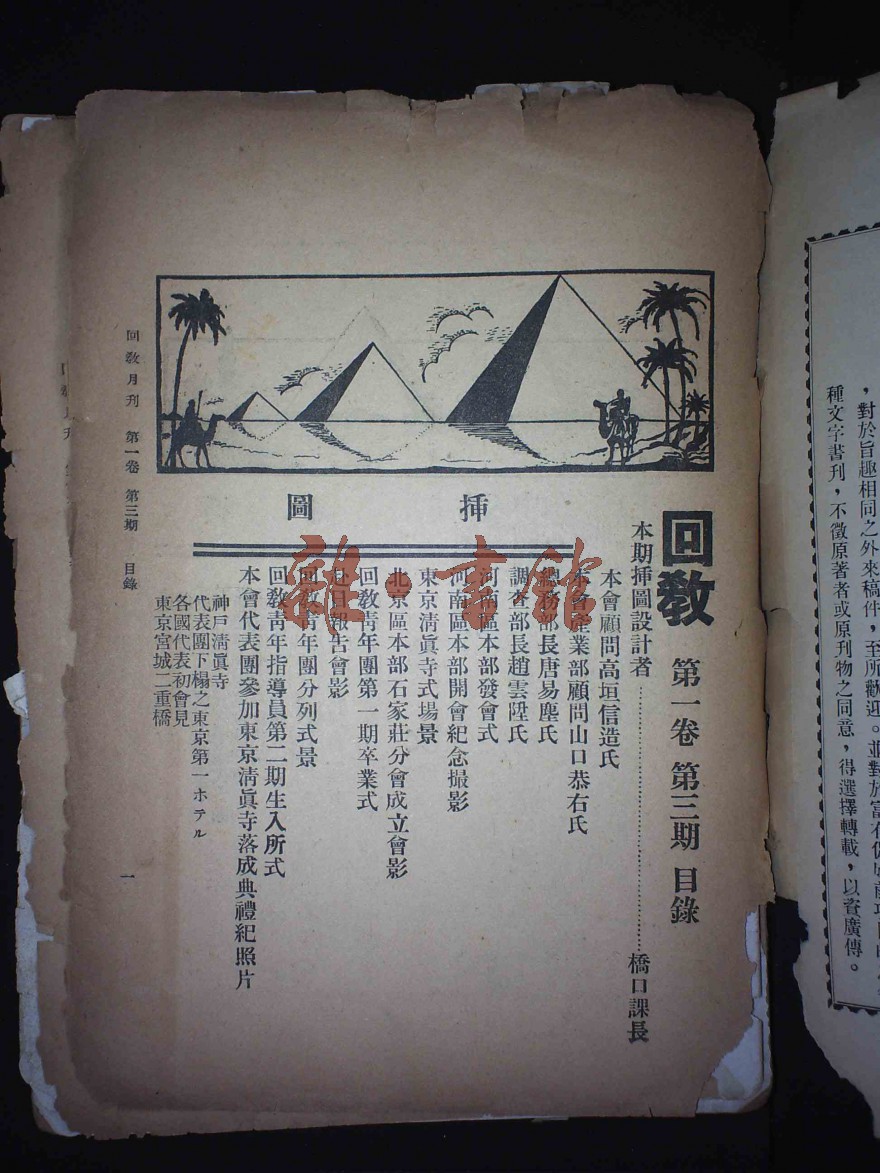 種文字書刊，不徵原著者或原刊物之同意，得選擇轉載，以資廣傳。
，對於旨趣相同之外來稿件，至所歡迎。並對於
回教 第一卷 第三期 目錄
挿圖
本期挿圖設計者……橋口課長
本會顧問高垣信造氏
本會產業部顧問山口恭右氏
總務部長唐易塵氏
調查部長趙雲陞氏
河南區本部發會式
河南區本部開會紀念撮影
東京淸眞寺式場景
北京區本部石家莊分會成立會影
回敎靑年團第一期卒業式
赴日報告會影
回敎靑年團分列式景
回敎靑年指導員第二期生入所式
本會代表團參加東京淸眞寺落成典禮紀照片
神戶淸眞寺
代表團下榻之東京第一ホテル
各國代表初會見
東京宮城二重橋
回敎月刊 第一卷 第三期 目錄
一
雜·書館